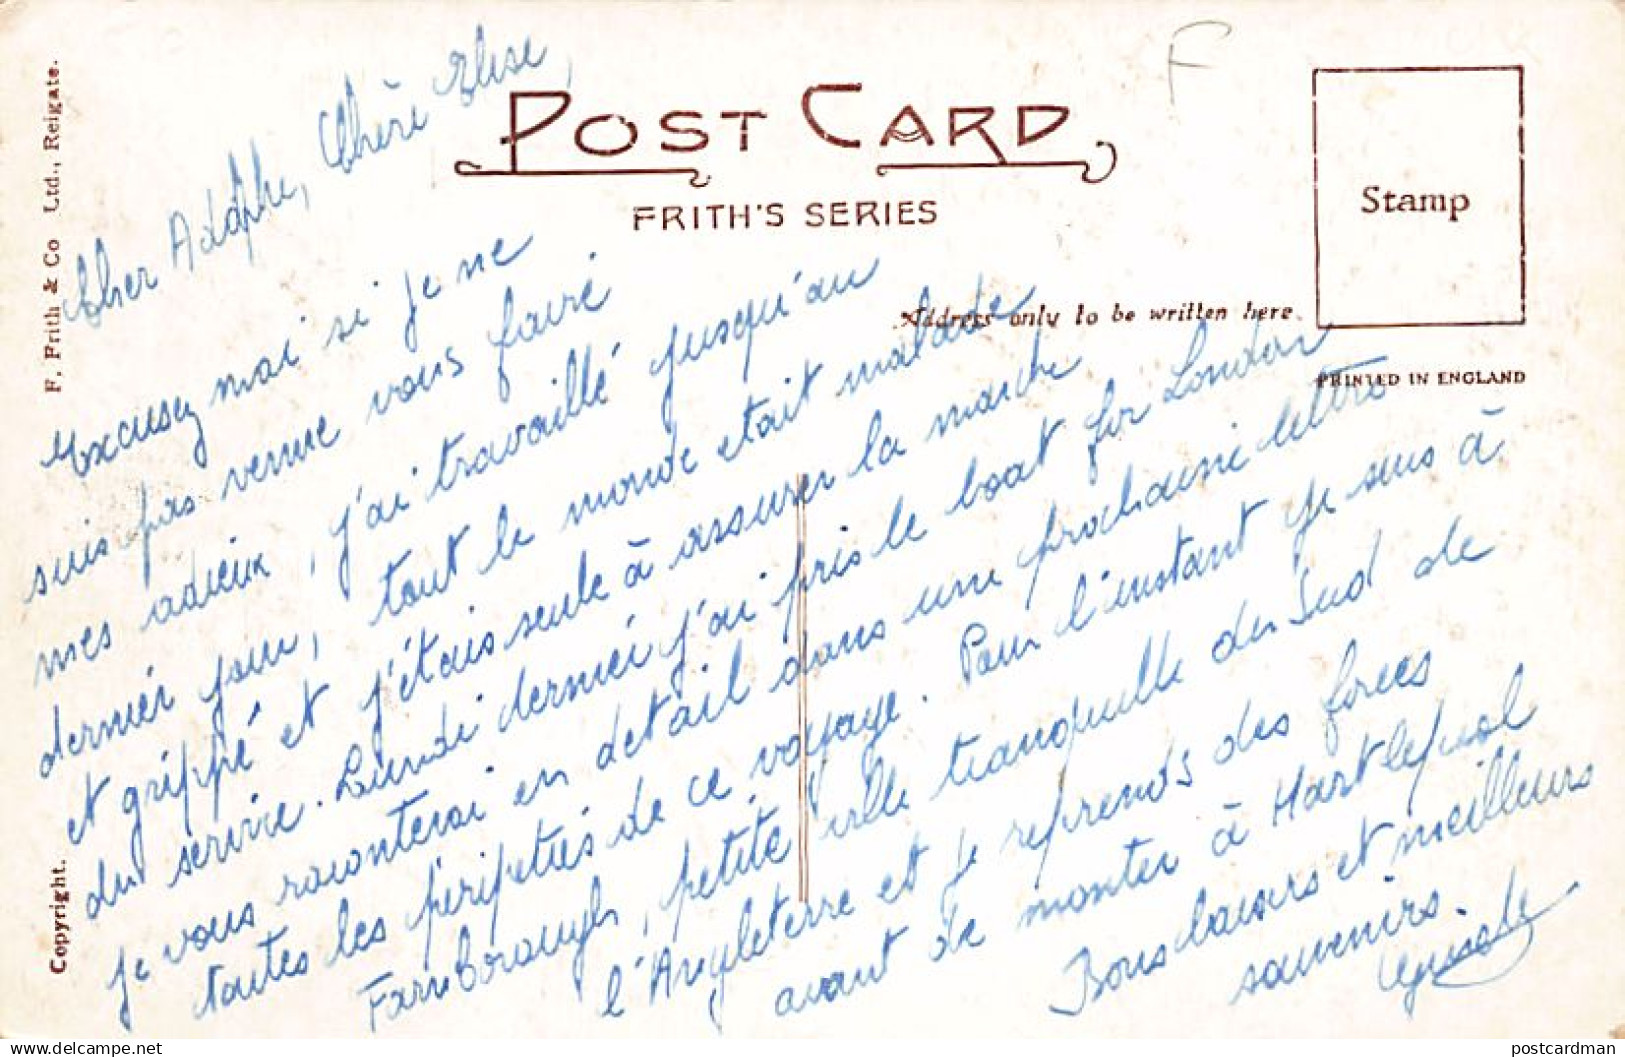 POST CARD
FRITH'S SERIES
Stamp
Address only to be written here.
PRINTED IN ENGLAND
F. Frith & Co Ltd., Reigate.
Copyright.
F
Cher Adolphe, Chère Elise,
Excusez moi si je ne
suis pas venue vous faire
mes adieux, j'ai travaillé jusqu'au
dernier jour, tout le monde etait malade
et grippé et j'étais seule à assurer la marche
du service. Lundi dernier j'ai pris le boat for London
je vous raconterai en detail dans une prochaine lettre
toutes les péripeties de ce voyage. Pour l'instant je suis à
Farnborough, petite ville tranquille du Sud de
l'Angleterre et je reprends des forces
avant de monter à Hartlepool
Bons baisers et meilleurs
souvenirs.
www.delcampe.net
postcardman